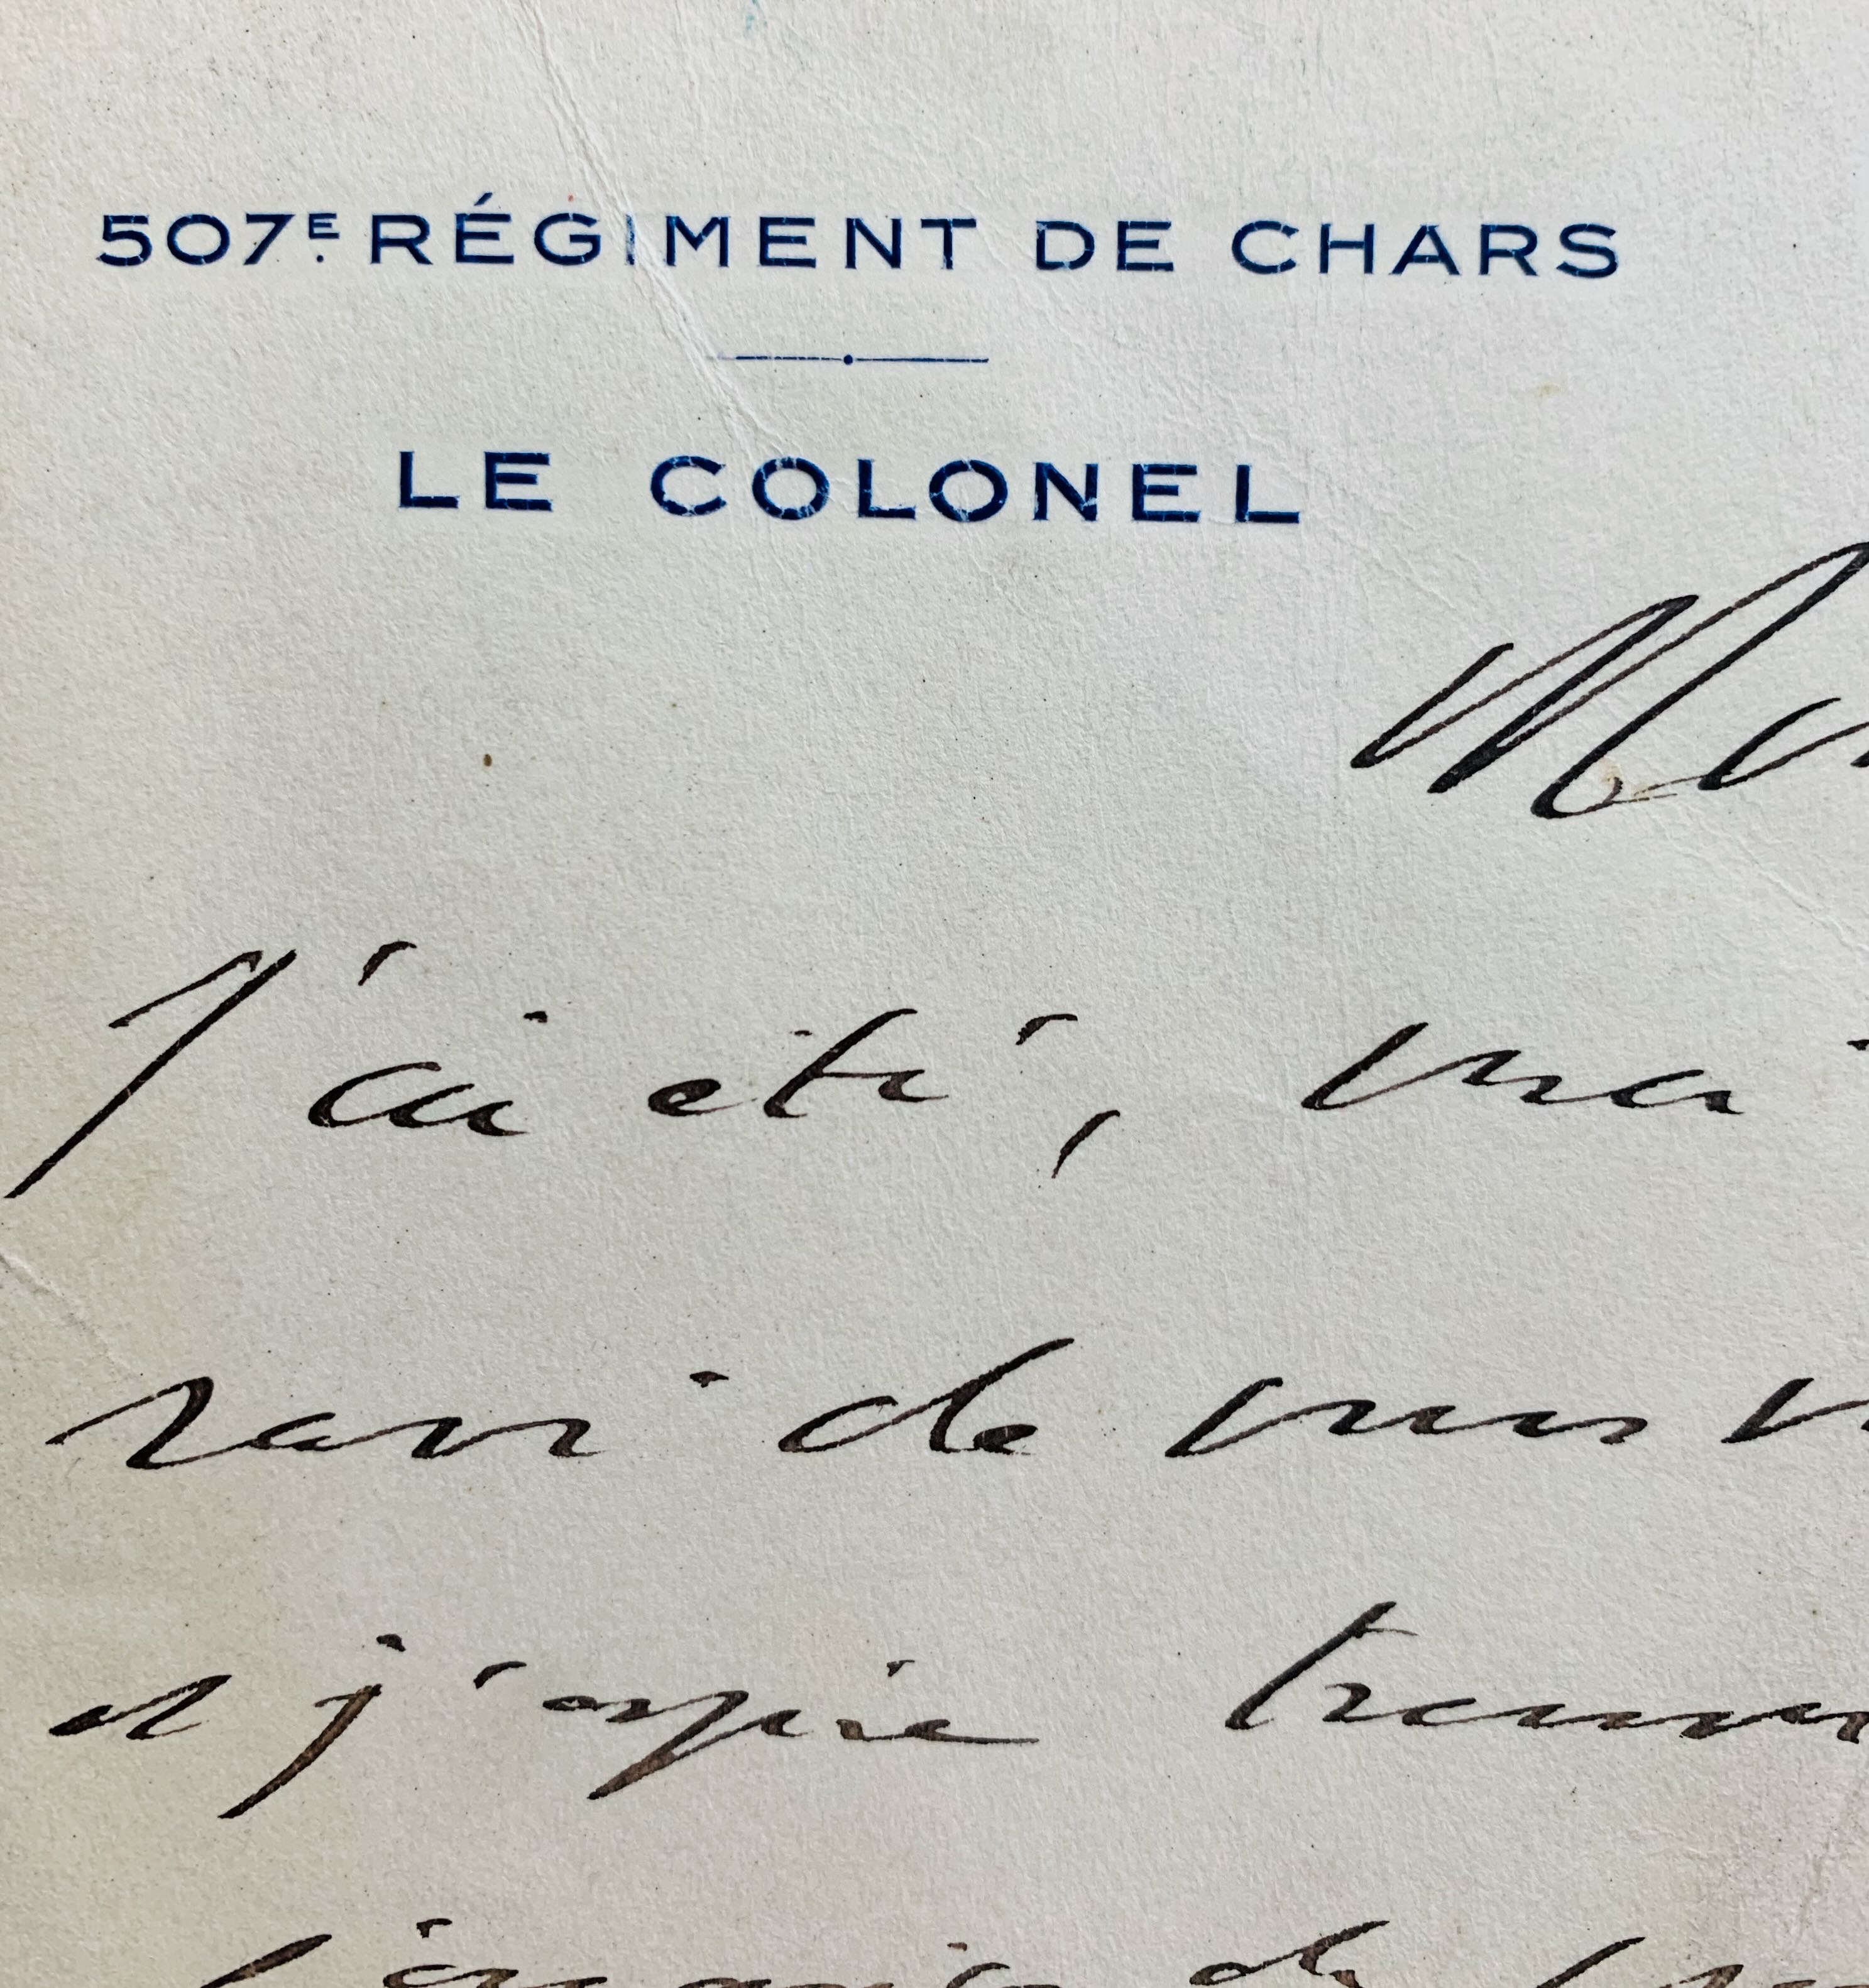 507E. RÉGIMENT DE CHARS
LE COLONEL
J'ai été, vrai
ravi de vous
et j'espère
de